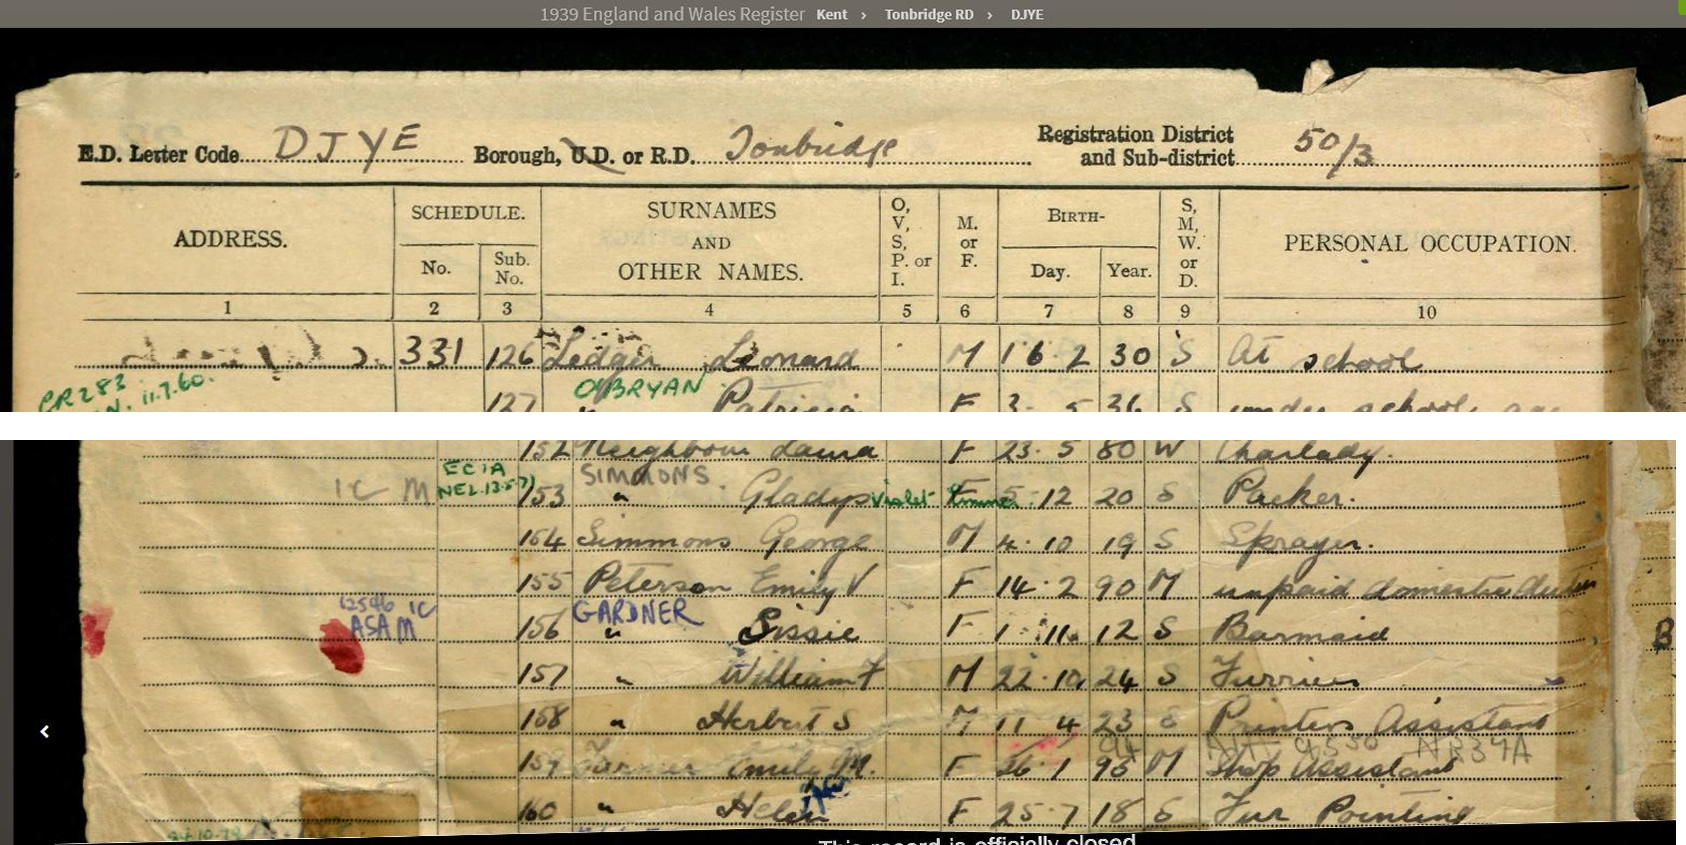 1939 England and Wales Register Kent › Tonbridge RD › DJYE
E.D. Letter Code DJYE Borough, U.D. or R.D. Tonbridge Registration District and Sub-district 50/3
ADDRESS. SCHEDULE. No. Sub. No. SURNAMES AND OTHER NAMES. O, V, S, P. or I. M. or F. BIRTH- Day. Year. S, M, W. or D. PERSONAL OCCUPATION.
1 2 3 4 5 6 7 8 9 10
331 126 Ledger Leonard M 16 2 30 S At school
CR283 11.7.60. O'BRYAN
127 " Patricia F 3 5 36 S under school age
152 Neighbour Laura F 23 5 80 W Charlady.
ECIA SIMMONS.
IC M NEL 13-5-71 153 " Gladys Violet F 5 12 20 S Packer.
154 Simmons George M 4 10 19 S Sprayer.
155 Peterson Emily V F 14 2 90 M unpaid domestic duties
12546 IC GARDNER
ASA M 156 " Sissie F 1 11 12 S Barmaid
157 " William F M 22 10 24 S Furrier
158 " Herbert S M 11 4 23 S Printers Assistant
94 NR34A
159 Farmer Emily M. F 26 1 95 M Shop Assistant
160 " Helen F 25 7 18 S Fur Pointing
This record is officially closed